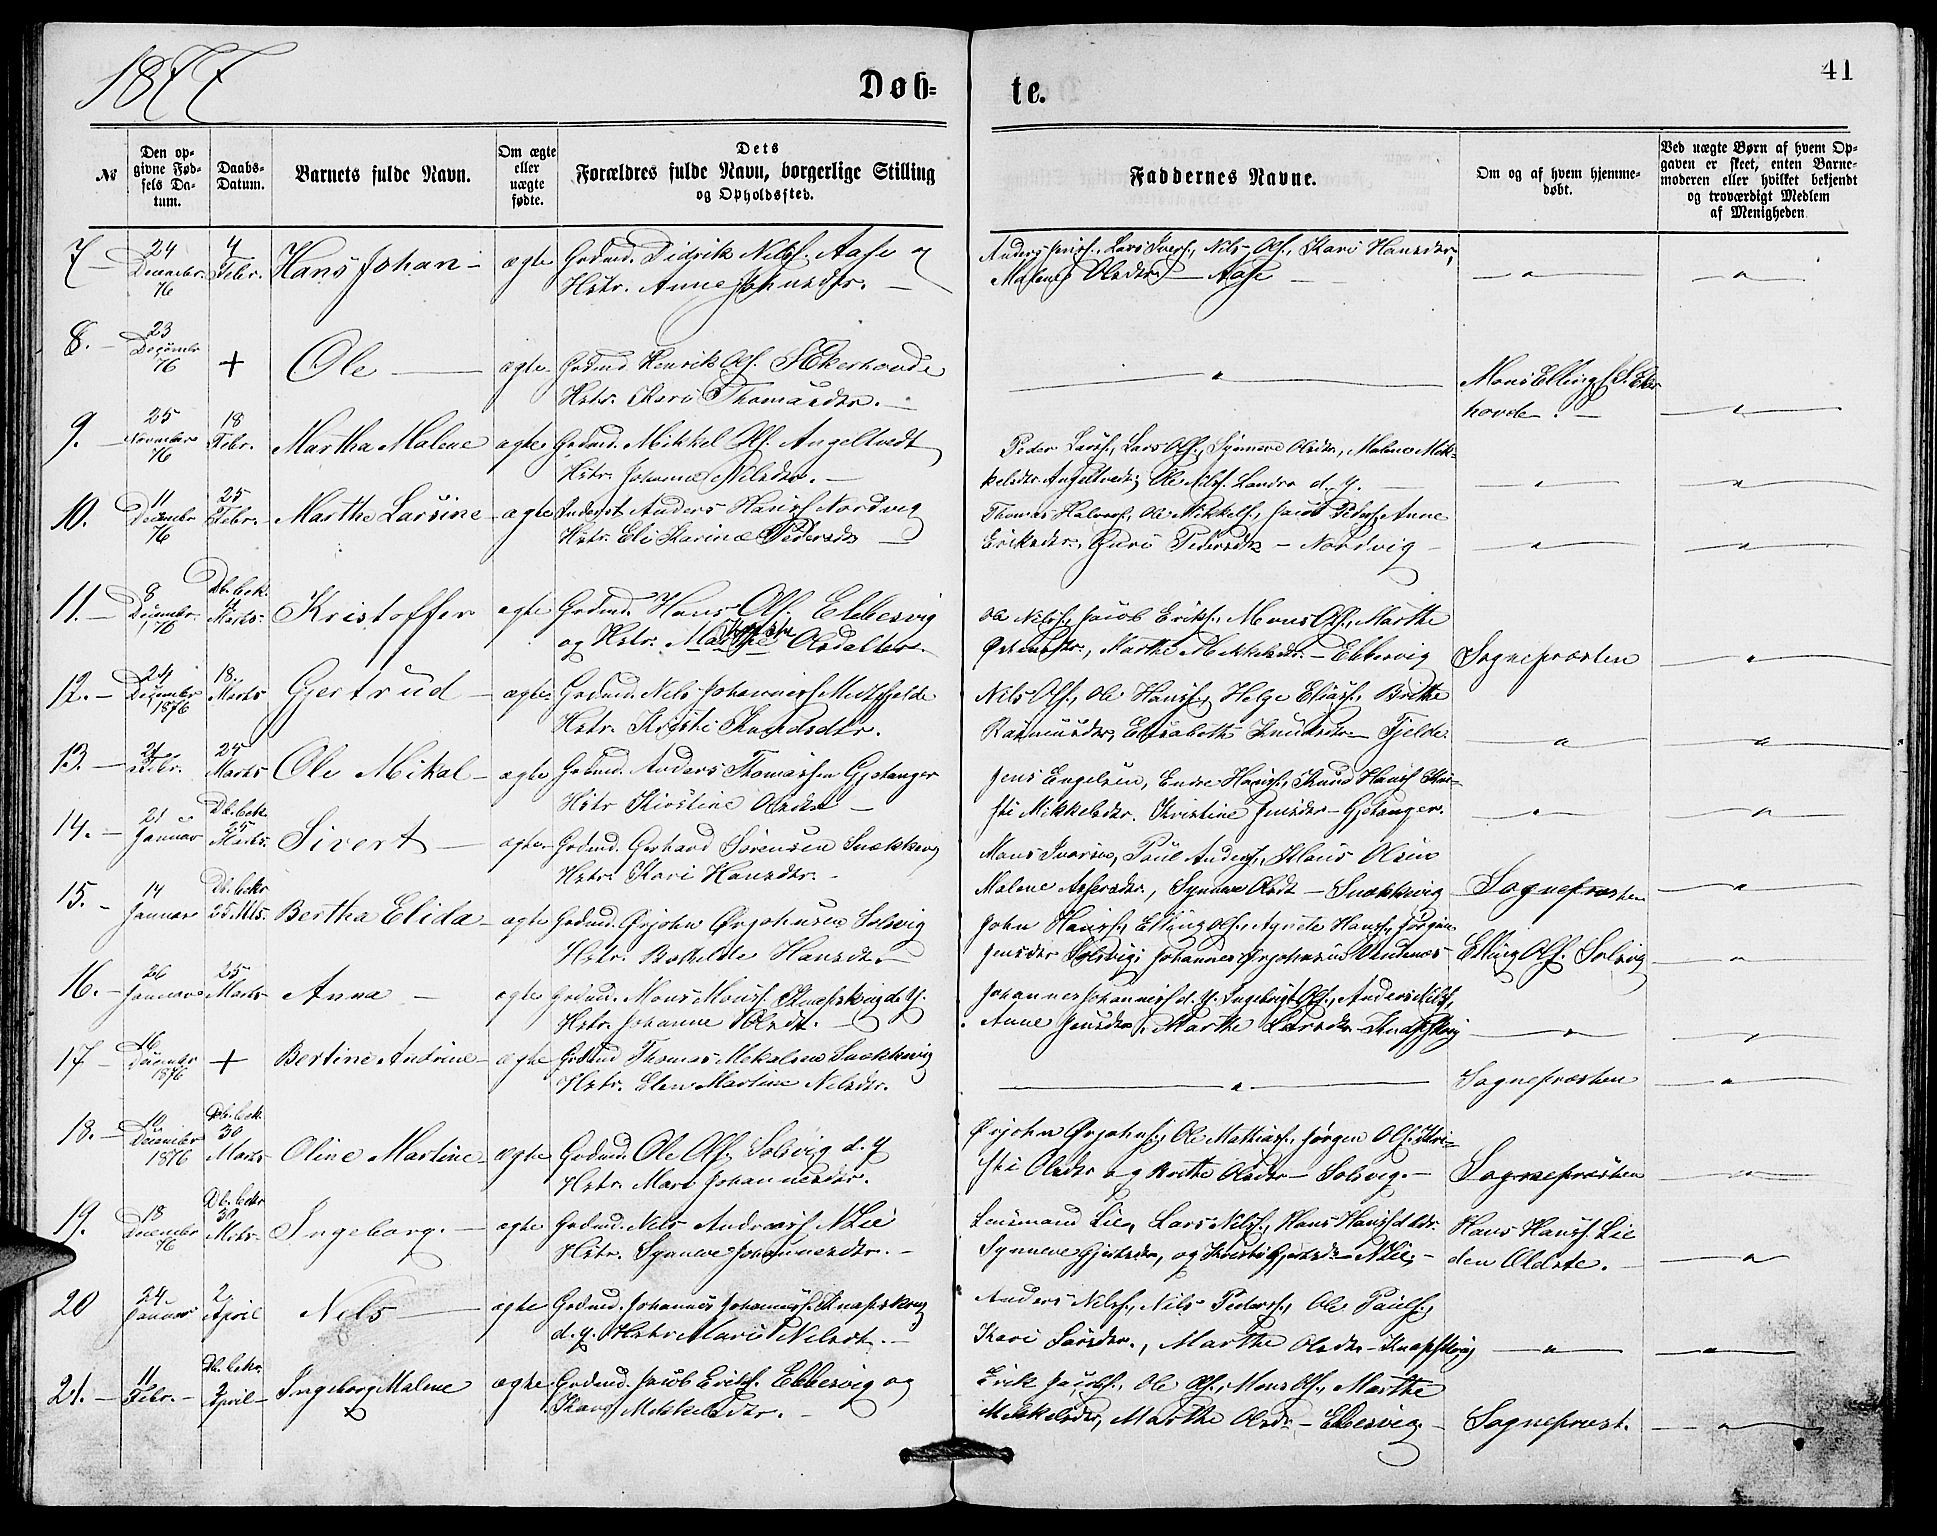 1877
Døb-
te.
41
№
Den op-
givne Fød-
sels Da-
tum.
Daabs-
Datum.
Barnets fulde Navn.
Om ægte
eller
uægte
fødte.
Dets
Forældres fulde Navn, borgerlige Stilling
og Opholdssted.
Faddernes Navne.
Om og af hvem hjemme-
døbt.
Ved uægte Børn af hvem Op-
gaven er skeet, enten Barne-
moderen eller hvilket bekjendt
og troværdigt Medlem
af Menigheden.
7 — 24 Decembr. 76
4 Febr.
Hans Johan —
ægte
Grdmd. Didrik Nilss. Aase og
Hstr. Anne Johnsdtr. —
Lars Iverss., Nils Ols., Kari Hansdtr.,
Malene Olsdtr. — Aase —
8. — 23 Decembr 76
+
Ole —
ægte
Grdmd. Henrik Ols. Ekerhovde
Hstr. Kari Thomasdtr. —
Mons Ellings. Eker
hovde. —
9. — 25 Novembr 76
18 Febr.
Martha Malene
ægte
Grdmd. Mikkel Ols. Angeltvedt
Hstr. Johanne Nilsdtr. —
Peder Larss., Lars Ols., Synneve Olsdtr., Malene Mik-
kelsdtr. Angeltvedt, Ole Nilss. Landro d. y. —
10. 11 Decembr 76
25 Febr.
Marthe Larsine
ægte
Inderst Anders Hanss. Nordvig
Hstr. Eli Karine Pedersdtr —
Thomas Halvors., Ole Mikkels., Jacob Peders., Anne
Eriksdtr., Guri Pedersdtr — Nordvig —
11. — 8 Decembr. 1876
Db. bek. 4 Marts.
Kristoffer
ægte
Grdmd. Hans Ols. Ebbesvig
og Hstr. Marthe Olsdatter.
Ole Nilss., Jacob Eriks., Mons Ols., Marthe
Marthe Mikkelsdtr. — Ebbesvig
Sognepræsten
12. — 24 Decembr 1876
18. Marts
Gjertrud —
ægte
Grdmd. Nils Johanness. Midtfjelde
Hstr. Kristi Knudsdtr.
Nils Ols., Ole Hanss., Helge Eliass., Brithe
Rasmusdtr., Elisabeth Knudsdtr — Fjelde.
13. — Febr.
25 Marts
Ole Mikal —
ægte
Grdmd. Anders Thomassen Gjetanger
Hstr Kirstine Olsdtr —
Jens Engelsen, Endre Hanss., Knud Hanss. Kir-
sti Mikkelsdtr. Kristine Jensdtr — Gjetanger.
14. — 21 Januar
Db. bek. 25 Marts.
Sivert —
ægte
Grdmd. Gerhard Sørensen Snekkevig
Hstr. Kari Hansdtr. —
Mons Iversen, Paul Anders., Klaus Olsen
Malene Assersdtr., Synneve Olsdt — Snekkevig
Sognepræsten
15. — 14 Januar
Db. bekr 25 Mts.
Bertha Elida —
ægte
Grdmd. Ørjohn Ørjohnsen Solsvig
Hstr. Bothilde Hansdtr —
John Hanss., Elling Ols., Agnete Hanss., Jørgine
Jensdtr Solsvig; Johannes Ørjohnsen Vindenæs
Elling Ols. Solsvig
16. — 26 Januar
25 Marts
Anna —
ægte
Grdmd. Mons Monss. Knapskvig d. y.
Hstr. Johanne Olsdt. —
Johannes Johanness. d. y. Ingebrigt Ols., Anders Nilss.,
Anne Jensdtr., Marthe Larsdtr — Knapskvig
17 — 16 Decembr 1876
+
Bertine Andrine —
ægte
Grdmd Thomas Mikalsen Snekkevig
Hstr. Elen Martine Nilsdtr.
Sognepræsten
18. — 10 Decembr 1876
Db. bek. 30 Marts
Oline Martine —
ægte
Grdmd. Ole Ols. Solsvig d. y
Hstr. Mari Johannesdtr.
Ørjohn Ørjohns., Ole Mathiass., Jørgen Ols., Kri-
sti Olsdtr og Brithe Olsdtr — Solsvig. —
Sognepræsten
19. 18 Decembr 76
Db. bekr 30 Mrts.
Ingeborg. —
ægte
Grdmd. Nils Andreass. N Lie
Hstr. Synneve Johannesdtr. —
Lensmand Lie, Lars Nilss., Hans Hanss. d. ældr.
Synneve Gjertsdtr, og Kristi Gjertsdtr — N Lie; —
Hans Hanss. Lie
den Ældste. —
20 24 Januar
2 April
Nels —
ægte
Grdmd. Johannes Johanness. Knapskvig
d. y. Hstr Mari Nilsdt. —
Anders Nilss., Nils Peders., Ole Pauls.,
Kari Larsdtr., Marthe Olsdtr — Knapskvig
21. — 11 Febr. —
Db. bekr. April —
Ingeborg Malene
x
ægte
Grdmd. Jacob Eriks. Ebbesvig og
Kari Mikkelsdtr. —
Erik Jacobs., Ole Ols., Mons Ols., Marthe
Mikkelsdtr, Marthe Olsdr — Ebbesvig. —
Sognepræst.